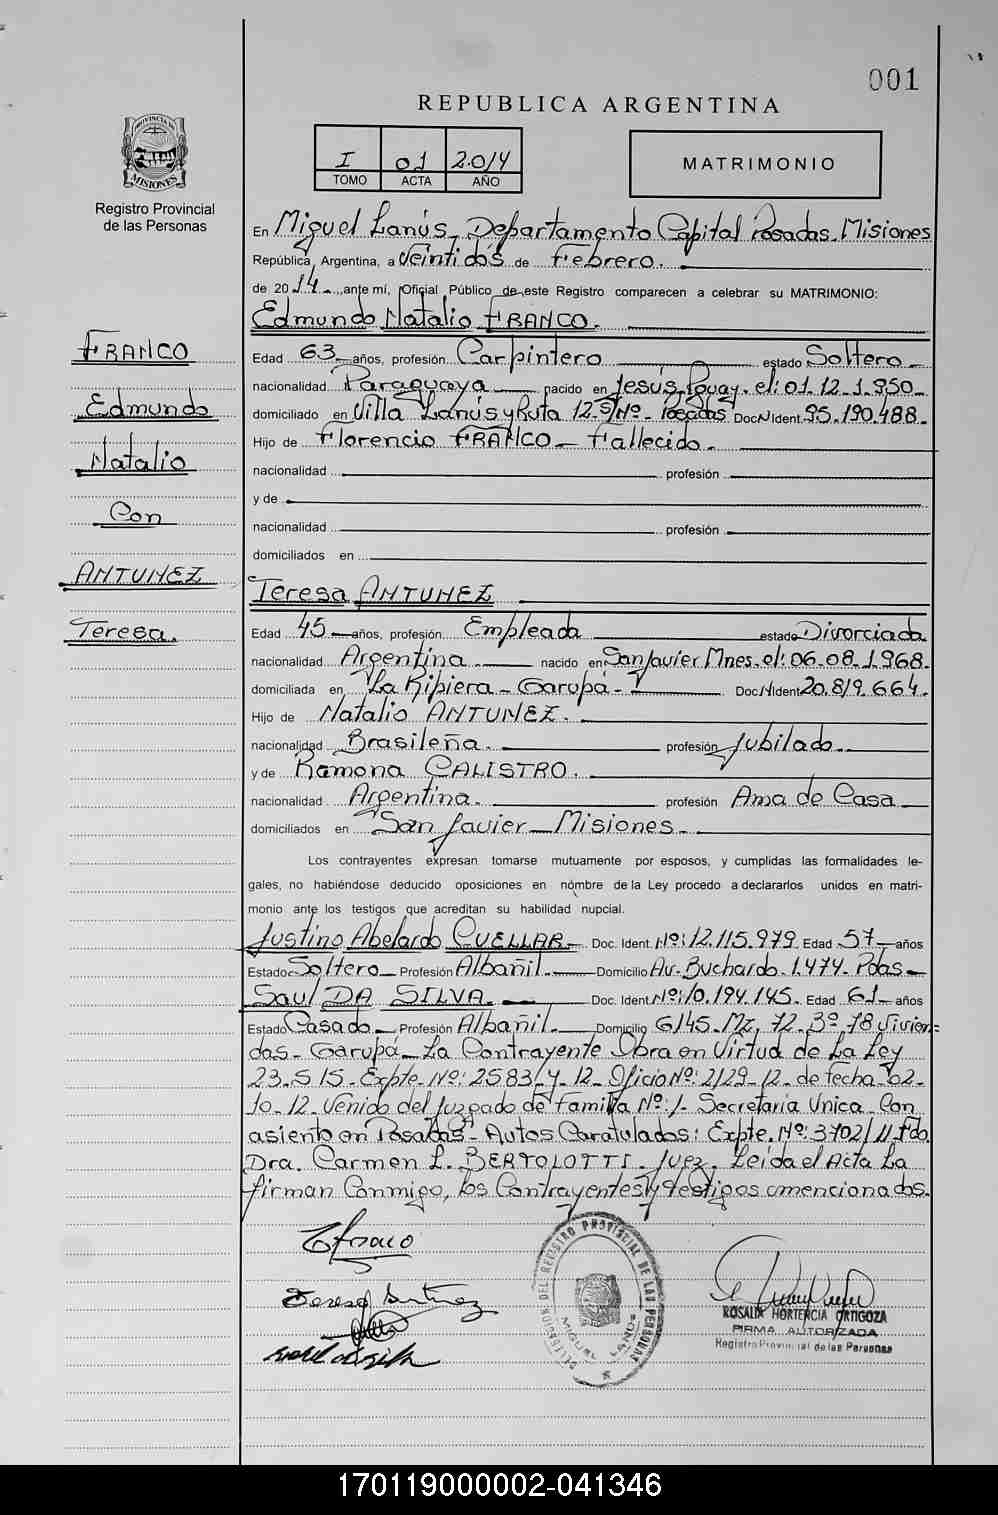 001
REPUBLICA ARGENTINA
PROVINCIA DE
MISIONES
Registro Provincial
de las Personas
I 01 2.014
TOMO ACTA AÑO
MATRIMONIO
En Miguel Lanús, Departamento Capital Posadas. Misiones
República Argentina, a Veintidós de Febrero.
de 2014 ante mí, Oficial Público de este Registro comparecen a celebrar su MATRIMONIO:
Edmundo Natalio FRANCO.
FRANCO
Edmundo
Natalio
Con
ANTUNEZ
Teresa.
Edad 63 años, profesión Carpintero estado Soltero
nacionalidad Paraguaya nacido en Jesús, Pguay. el: 01.12.1.950-
domiciliado en Villa Lanús y Ruta 12 S/Nº- Posadas Doc N Ident. 95.190.488.
Hijo de Florencio FRANCO - Fallecido.
nacionalidad profesión
y de
nacionalidad profesión
domiciliados en
Teresa ANTUNEZ
Edad 45 años, profesión Empleada estado Divorciada
nacionalidad Argentina. nacido en San Javier Mnes. el: 06-08-1.968.
domiciliada en La Ripiera - Garupá - Doc N Ident 20.819.664.
Hijo de Natalio ANTUNEZ.
nacionalidad Brasileña. profesión Jubilado.
y de Ramona CALISTRO.
nacionalidad Argentina. profesión Ama de Casa
domiciliados en San Javier - Misiones.
Los contrayentes expresan tomarse mutuamente por esposos, y cumplidas las formalidades le-
gales, no habiéndose deducido oposiciones en nombre de la Ley procedo a declararlos unidos en matri-
monio ante los testigos que acreditan su habilidad nupcial.
Justino Abelardo CUELLAR Doc. Ident. Nº: 12.115.979 Edad 57 años
Estado Soltero Profesión Albañil. Domicilio Av. Buchardo 1.474 Pdas
Saul DA SILVA. Doc. Ident Nº: 10.194.145. Edad 61 años
Estado Casado Profesión Albañil. Domicilio 6145. Mz. 72. 3º 78 Vivien-
das - Garupá - La Contrayente Obra en Virtud de la Ley
23.515 - Expte. Nº: 2583/Y-12 Oficio Nº: 2129-12 de fecha 02-
10-12 Venido del Juzgado de Familia Nº: 1- Secretaria Unica - Con
asiento en Posadas - Autos Caratulados: Expte. Nº: 3702/11 Fdo.
Dra. Carmen L. BERTOLOTTI. Juez. Leida el Acta La
firman Conmigo, los Contrayentes y testigos mencionados.
Teresa Antunez
DELEGACION DEL REGISTRO PROVINCIAL DE LAS PERSONAS
MIGUEL LANUS
ROSALIA HORTENCIA ORTIGOZA
FIRMA AUTORIZADA
Registro Provincial de las Personas
170119000002-041346